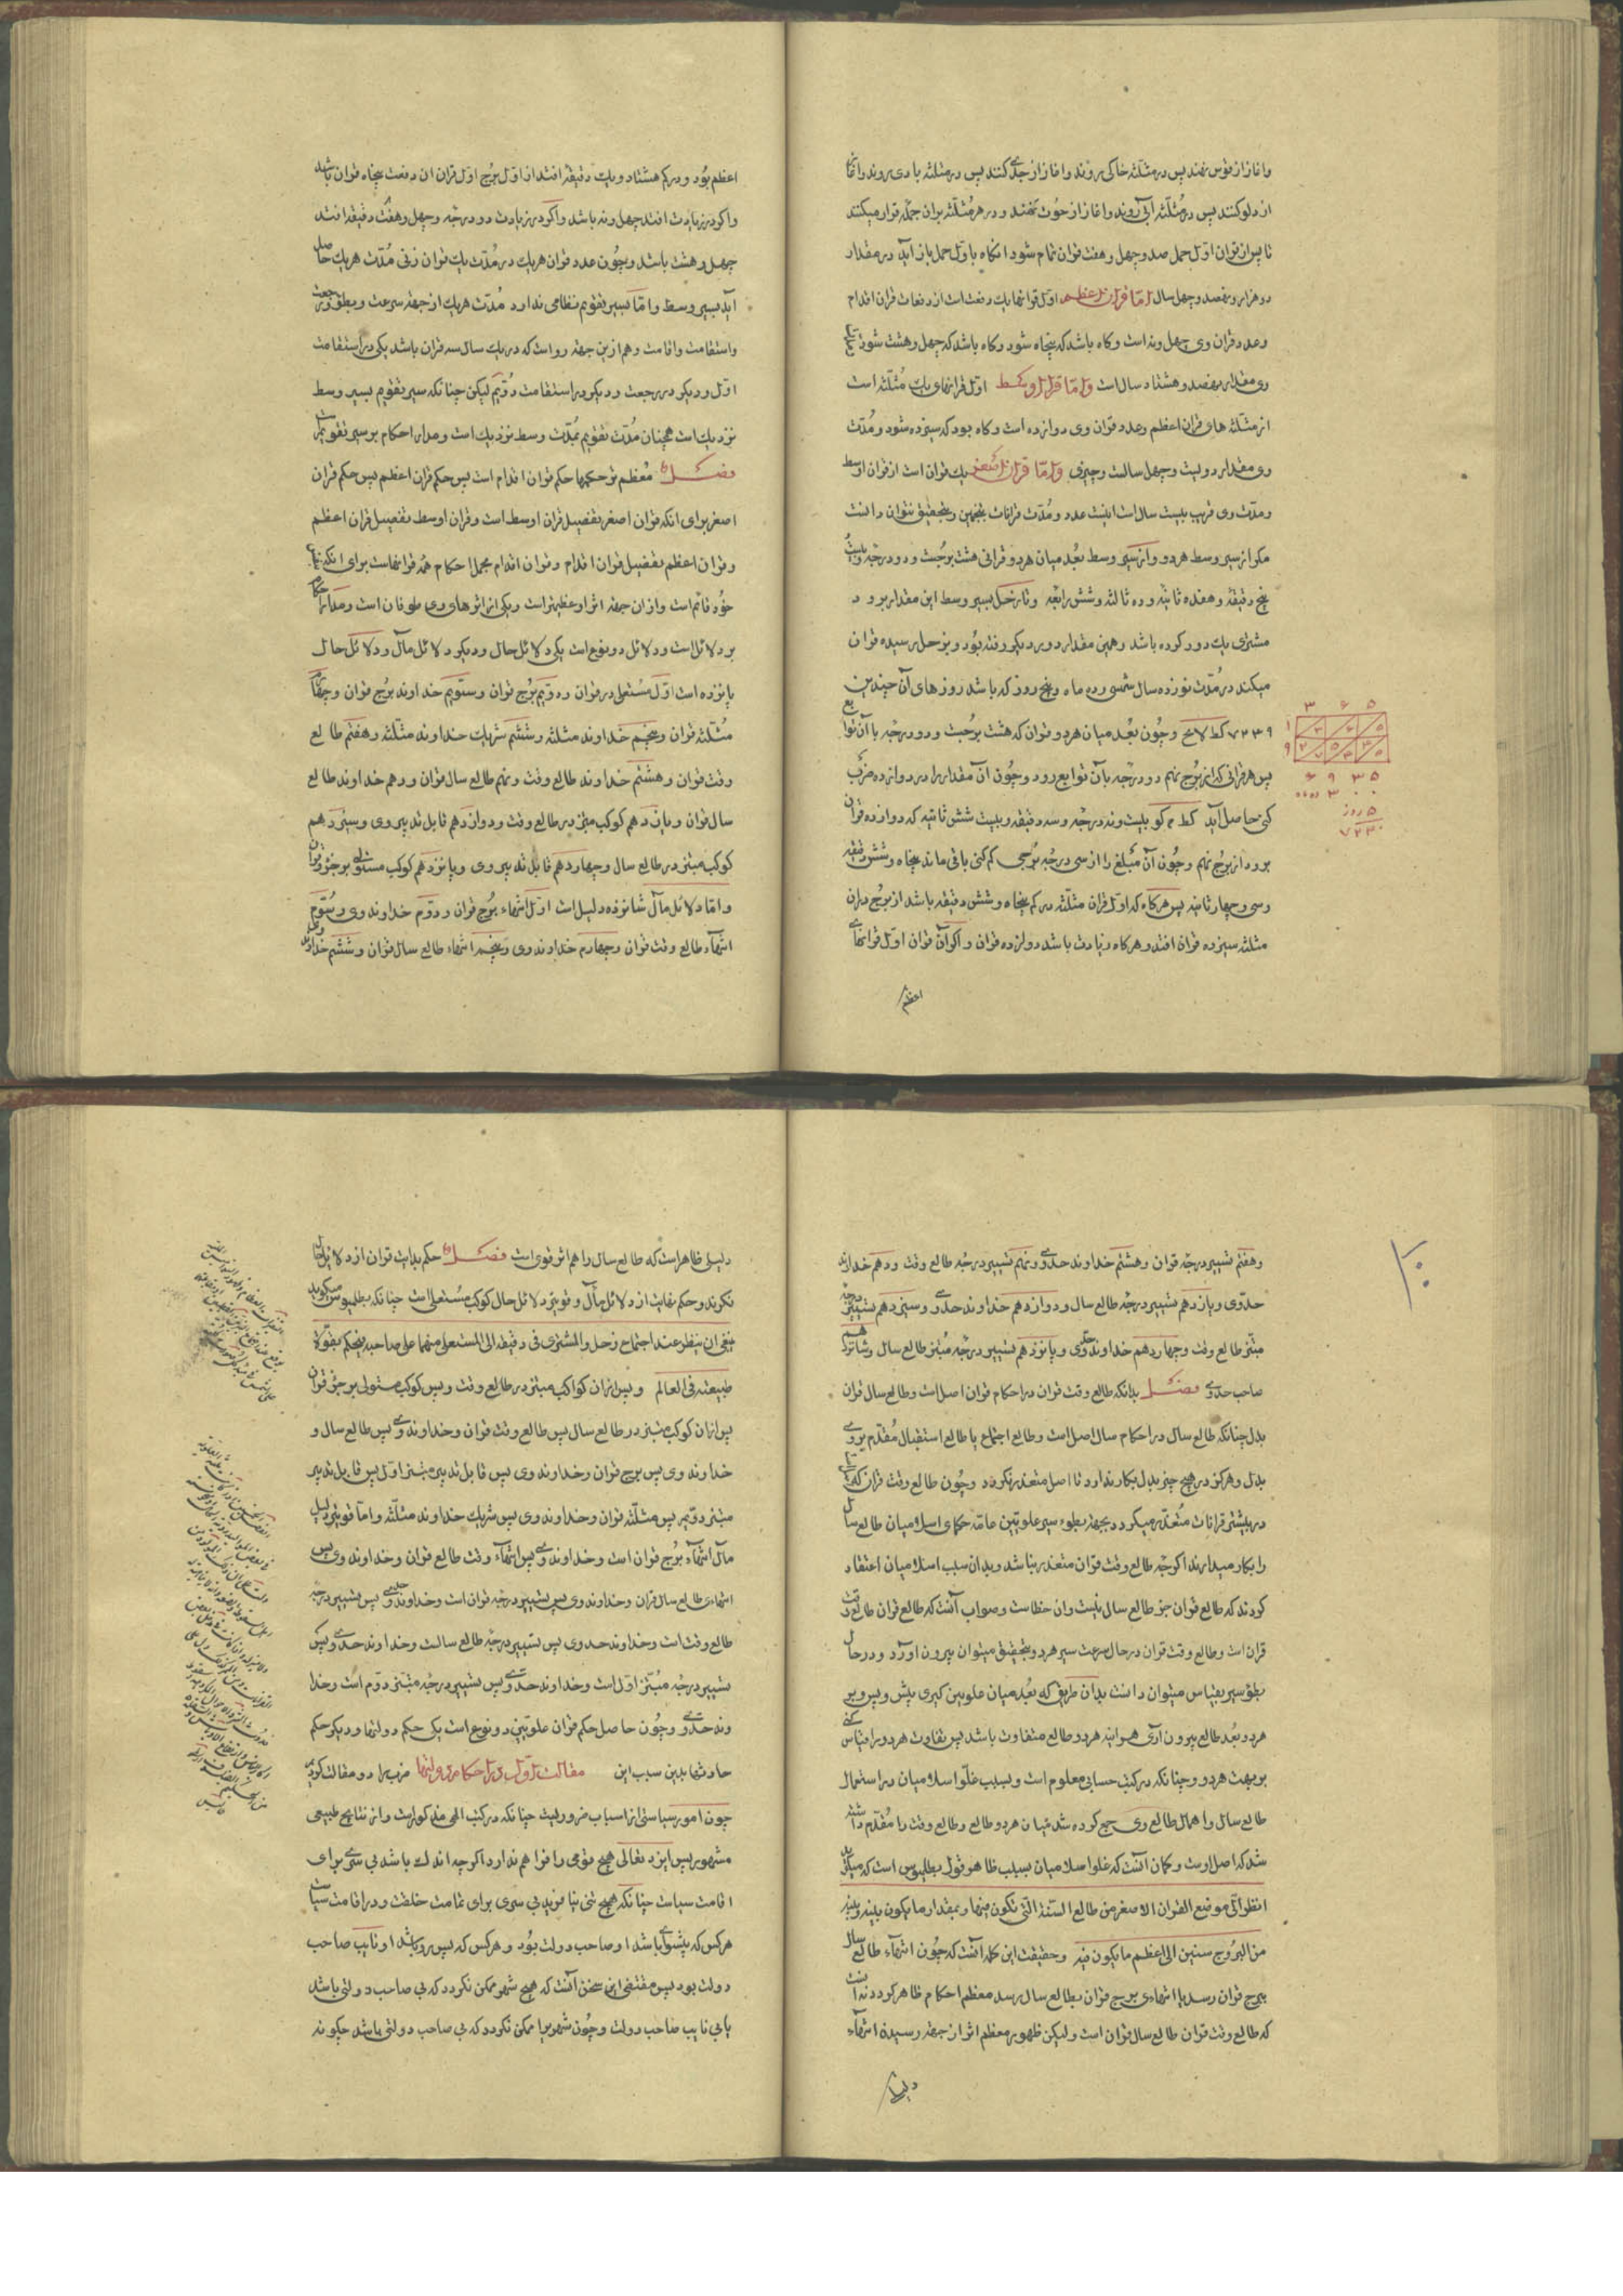 و اغاز از قوس نهند پس در مثلثه خاکی روند و اغاز از جدی کنند پس در مثلثه بادی روند و اغاز
از دلو کنند پس در مثلثه آبی روند و اغاز از حوت نهند و در هر مثلثه بران جمله قرار میکنند
تا پس از قران اول حمل صد و چهل و هفت قران تمام شود انکاه باول حمل باز آید در مقدار
دو هزار و نهصد و چهل سال اما قران اعظم اول قرانها یک دفعت است از دفعات قران اقدام
و عدد قران وی چهل و نه است و کاه باشد که پنجاه شود و کاه باشد که چهل و هشت شود
وی مقدار نهصد و هشتاد سال است و اما قران اوسط اول قرانهای یک مثلثه است
از مثلثه های قران اعظم و عدد قران وی دوازده است و کاه بود که سیزده شود و مدت
وی مقدار دویست و چهل سالست و چیزی و اما قران اصغر یک قران است از قران اوسط
و مدت وی قریب بیست سال است اینست عدد و مدت قرانات بتخمین و بتحقیق نتوان دانست
مکر از سیر وسط هر دو و از سیر وسط بعد میان هر دو قرانی هشت برجست و دو درجه و بیست
پنج دقیقه و هفده ثانیه و ده ثالثه و شش رابعه و تا زحل بسیر وسط این مقدار برود
مشتری یک دور کرده باشد و همین مقدار دور دیکر رفته بود و بزحل رسیده قران
میکند در مدت نوزده سال شمسی و ده ماه و پنج روز که باشد روزهای آن چندین
۷۲۳۹ کط لا مح و چون بعد میان هر دو قران که هشت برجست و دو درجه با آن توابع
پس هر قرانی که از برج نهم دو درجه بآن توابع رود و چون آن مقدار را در دوازده ضرب
کنی حاصل آید کط م کو بیست و نه درجه و سه دقیقه و بیست شش ثانیه که دوازده قران
برود از برج نهم و چون آن مبلغ را از سی درجه برجی کم کنی باقی ماند پنجاه و شش دقیقه
و سی و چهار ثانیه پس هرکاه که اول قران مثلثه در کم پنجاه و شش دقیقه باشد از برج دران
مثلثه سیزده قران افتد و هرکاه زیادت باشد دوازده قران و اکر آن قران اول قرانهای
اعظم
۳ ۶ ۵
۱
۹
۵ روز
اعظم بود و در کم هشتاد و یک دقیقه افتد از اول برج اول قران ان دفعت پنجاه قران باشد
و اکر در زیادت افتد چهل و نه باشد و اکر در زیادت دو درجه و چهل و هفت دقیقه افتد
چهل و هشت باشد و چون عدد قران هر یک در مدت یک قران زنی مدت هر یک حاصل
آید بسیر وسط و اما بسیر تقویم نظامی ندارد مدت هر یک از جهة سرعت و بطؤ و رجعت
و استقامت و اقامت و هم ازین جهة رواست که در یک سال سه قران باشد یکی در استقامت
اول و دیکر در رجعت و دیکر در استقامت دویم لیکن چنانکه سیر تقویم بسیر وسط
نزدیک است همچنان مدت تقویم بمدت وسط نزدیک است و مدار احکام بر سیر تقویم است
فصل معظم تر حکمها حکم قران اقدام است پس حکم قران اعظم پس حکم قران
اصغر برای انکه قران اصغر تفصیل قران اوسط است و قران اوسط تفصیل قران اعظم
و قران اعظم تفصیل قران اقدام و قران اقدام مجمل احکام همه قرانهاست برای انکه
خود قائم است و ازان جهة اثر او عظیمتر است و یکی از اثرهای وی طوفان است و مدار احکام
بر دلائل است و دلائل دو نوع است یکی دلائل حال و دیکر دلائل مآل و دلائل حال
پانزده است اول مستعلی در قران و دویم برج قران و سویم خداوند برج قران و چهارم
مثلثه قران و پنجم خداوند مثلثه و ششم شریک خداوند مثلثه و هفتم طالع
وقت قران و هشتم خداوند طالع وقت و نهم طالع سال قران و دهم خداوند طالع
سال قران و یازدهم کوکب مبتز در طالع وقت و دوازدهم قابل تدبیر وی و سیزدهم
کوکب مبتز در طالع سال و چهاردهم قابل تدبیر وی و پانزدهم کوکب مستولی بر جزو قران
و اما دلائل مآل شانزده دلیل است اول انتهاء برج قران و دوم خداوند وی و سوم
انتهاء طالع وقت قران و چهارم خداوند وی و پنجم انتهاء طالع سال قران و ششم خداوند
و هفتم تسییر درجه قران و هشتم خداوند حد وی و نهم تسییر درجه طالع وقت و دهم خداوند
حد وی و یازدهم تسییر درجه طالع سال و دوازدهم خداوند حد وی و سیزدهم تسییر درجه
مبتز طالع وقت و چهاردهم خداوند حد وی و پانزدهم تسییر درجه مبتز طالع سال و شانزدهم
صاحب حد وی فصل بدانکه طالع وقت قران در احکام قران اصل است و طالع سال قران
بدل چنانکه طالع سال در احکام سال اصل است و طالع اجتماع یا طالع استقبال مقدم بر وی
بدل و هرکز در هیچ چیز بدل بکار ندارد تا اصل متعذر نکردد و چون طالع وقت قران که
در بیشتر قرانات متعذر میکردد بجهة بطوء سیر علویین عامه حکمای اسلامیان طالع سال
را بکار میدارند اکرچه طالع وقت قران متعذر نباشد و بدان سبب اسلامیان اعتقاد
کردند که طالع قران جز طالع سال نیست و ان خطاست و صواب آنست که طالع قران طالع وقت
قران است و طالع وقت قران در حال سرعت سیر هر دو بتحقیق میتوان بیرون اورد و در حال
بطؤ سیر بقیاس میتوان دانست بدان طریق که بعد میان علویین کیری پیش و پس و بر
هر دو بعد طالع بیرون آری هر اینه هر دو طالع متفاوت باشد پس تفاوت هر دو را قیاس کنی
بر بهت هر دو و چنانکه در کتب حسابی معلوم است و بسبب غلو اسلامیان در استعمال
طالع سال و اهمال طالع وی جمع کرده شد میان هر دو طالع و طالع وقت را مقدم داشته
شد که اصل اوست و کمان آنست که غلو اسلامیان بسبب ظاهر قول بطلیموس است که میکوید
انظر الی موضع القران الاصغر من طالع السنة التی تکون فیها و بمقدار ما یکون بینه و بینه
من البروج سنین الی اعظم ما یکون فیه و حقیقت این کلمه آنست که چون انتهاء طالع سال
ببرج قران رسد یا انتهای برج قران بطالع سال رسد معظم احکام ظاهر کردد نه اینست
که طالع وقت قران طالع سال قران است و لیکن ظهور معظم اثر از جهة رسیدن انتهاء
دلیل
دلیل ظاهر است که طالع سال را هم اثر قوی است فصل حکم بدایت قران از دلائل حال
نکرند و حکم نهایت از دلائل مآل و قویتر دلائل حال کوکب مستعلی است چنانکه بطلیموس میکوید
ینبغی ان ینظر عند اجتماع زحل و المشتری فی دقیقة الی المستعلی منهما علی صاحبه فیحکم بقوة
طبیعته فی العالم و پس ازان کواکب مبتز در طالع وقت و پس کوکب مستولی بر جزو قران
پس ازان کوکب مبتز در طالع سال پس طالع وقت قران و خداوند وی پس طالع سال و
خداوند وی پس برج قران و خداوند وی پس قابل تدبیر مبتز اول پس قابل تدبیر
مبتز دویم پس مثلثه قران و خداوند وی پس شریک خداوند مثلثه و اما قویتر دلیل
مآل انتهاء برج قران است و خداوند وی پس انتهاء وقت طالع قران و خداوند وی پس
انتهاء طالع سال قران و خداوند وی پس تسییر درجه قران است و خداوند حد وی پس تسییر درجه
طالع وقت است و خداوند حد وی پس تسییر درجه طالع سالست و خداوند حد وی پس
تسییر درجه مبتز اول است و خداوند حد وی پس تسییر درجه مبتز دوم است و خدا
وند حد وی و چون حاصل حکم قران علویین دو نوع است یکی حکم دولتها و دیکر حکم
حادثها بدین سبب این مقالت اول در احکام دولتها ضرب را دو مقالت کردیم
چون امور سیاستی از اسباب ضروریست چنانکه در کتب الهی مذکور است و از نتایج طبیعی
مشهور پس ایزد تعالی هیچ قومی را فراهم ندارد اکرچه اندک باشد بی سری برای
اقامت سیاست چنانکه هیچ تنی نیافریند بی سری برای تمامت خلقت و در اقامت سیاست
هرکس که پیشوای باشد او صاحب دولت بود و هرکس که پس رو باشد او نایب صاحب
دولت بود پس مقتضی این سخن آنست که هیچ شهر ممکن نکردد که بی صاحب دولتی باشد
یا بی نایب صاحب دولت و چون شهر را ممکن نکردد که بی صاحب دولتی باشد چکونه